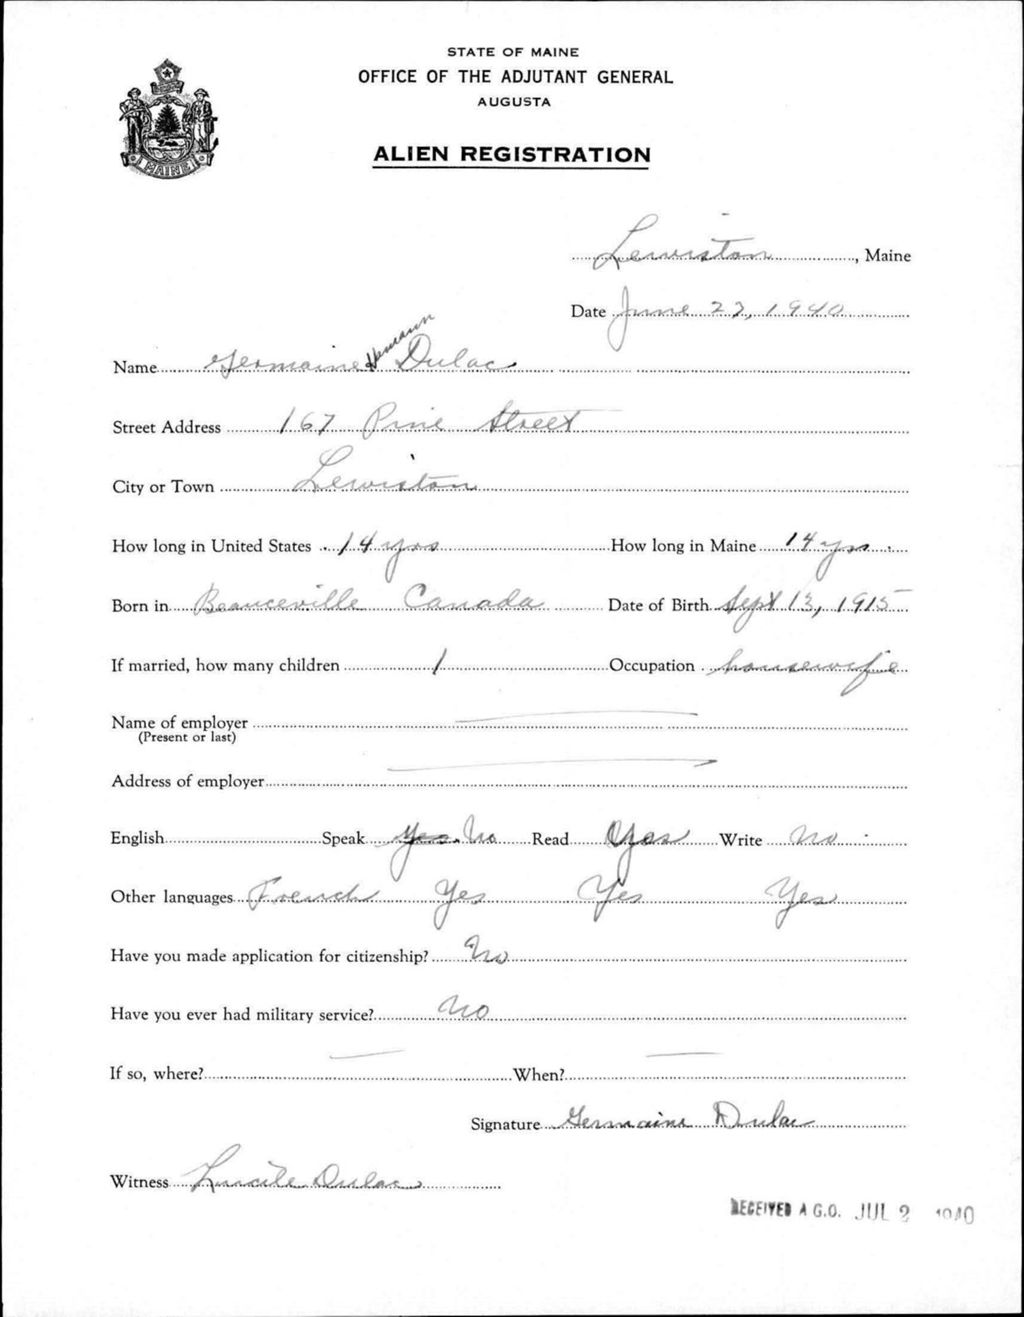 STATE OF MAINE
OFFICE OF THE ADJUTANT GENERAL
AUGUSTA
ALIEN REGISTRATION
MAINE
Lewiston, Maine
Date June 27, 1940
Name Germaine Dulac
Street Address 167 Pine Street
City or Town Lewiston
How long in United States 14 yrs How long in Maine 14 yrs
Born in Beauceville Canada Date of Birth Sept 13, 1915
If married, how many children 1 Occupation housewife
Name of employer
(Present or last)
Address of employer
English Speak Yes. No Read Yes Write No
Other languages French Yes Yes Yes
Have you made application for citizenship? No
Have you ever had military service? No
If so, where? When?
Signature Germaine Dulac
Witness Lucile Dulac
RECEIVED A.G.O. JUL 2 1940